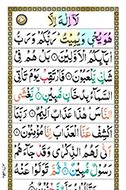 لَآ اِلٰهَ اِلَّا
هُوَ يُحْيٖ وَيُمِيْتُ ؕ رَبُّكُمْ وَرَبُّ
اٰبَآئِكُمُ الْاَوَّلِيْنَ ۝ بَلْ هُمْ فِيْ
شَكٍّ يَّلْعَبُوْنَ ۝ فَارْتَقِبْ يَوْمَ تَاْتِي
السَّمَآءُ بِدُخَانٍ مُّبِيْنٍ ۝ يَّغْشَى
النَّاسَ ؕ هٰذَا عَذَابٌ اَلِيْمٌ ۝ رَبَّنَا
اكْشِفْ عَنَّا الْعَذَابَ اِنَّا مُؤْمِنُوْنَ ۝
اَنّٰى لَهُمُ الذِّكْرٰى وَقَدْ جَآءَهُمْ
رَسُوْلٌ مُّبِيْنٌ ۝ ثُمَّ تَوَلَّوْا عَنْهُ